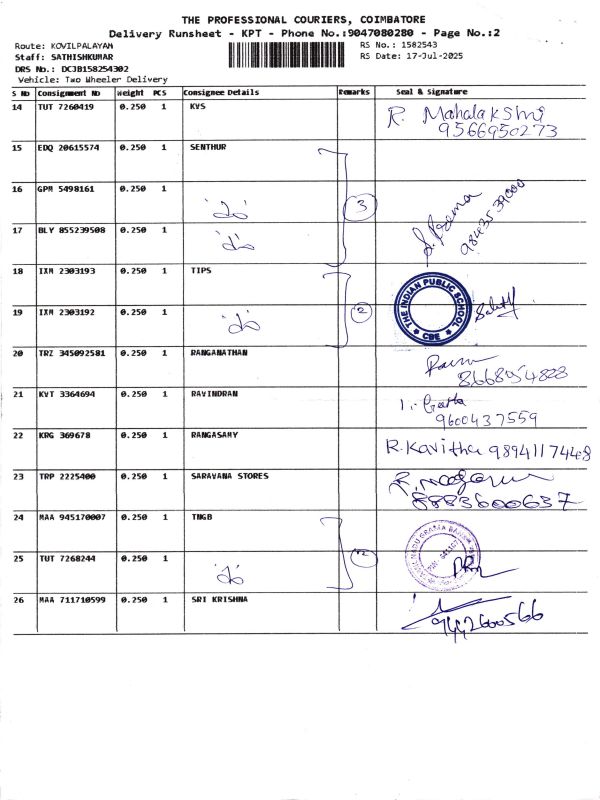 THE PROFESSIONAL COURIERS, COIMBATORE
Delivery Runsheet - KPT - Phone No.:9047080280 - Page No.:2
Route: KOVILPALAYAM
RS No.: 1582543
Staff: SATHISHKUMAR
RS Date: 17-Jul-2025
DRS No.: DCJB158254302
Vehicle: Two Wheeler Delivery
S No Consignment No Weight PCS Consignee Details Remarks Seal & Signature
14 TUT 7260419 0.250 1 KVS R. Mahalakshmi
9566950273
15 EDQ 20615574 0.250 1 SENTHUR
16 GPM 5498161 0.250 1 3
17 BLY 855239508 0.250 1
18 IXM 2303193 0.250 1 TIPS
19 IXM 2303192 0.250 1 2 THE INDIAN PUBLIC SCHOOL CBE
20 TRZ 345092581 0.250 1 RANGANATHAN
21 KVT 3364694 0.250 1 RAVINDRAN
9600437559
22 KRG 369678 0.250 1 RANGASAMY R. Kavitha 9894117448
23 TRP 2225400 0.250 1 SARAVANA STORES
8883600637
24 MAA 945170007 0.250 1 TNGB
25 TUT 7268244 0.250 1 2
26 MAA 711710599 0.250 1 SRI KRISHNA
9442600566